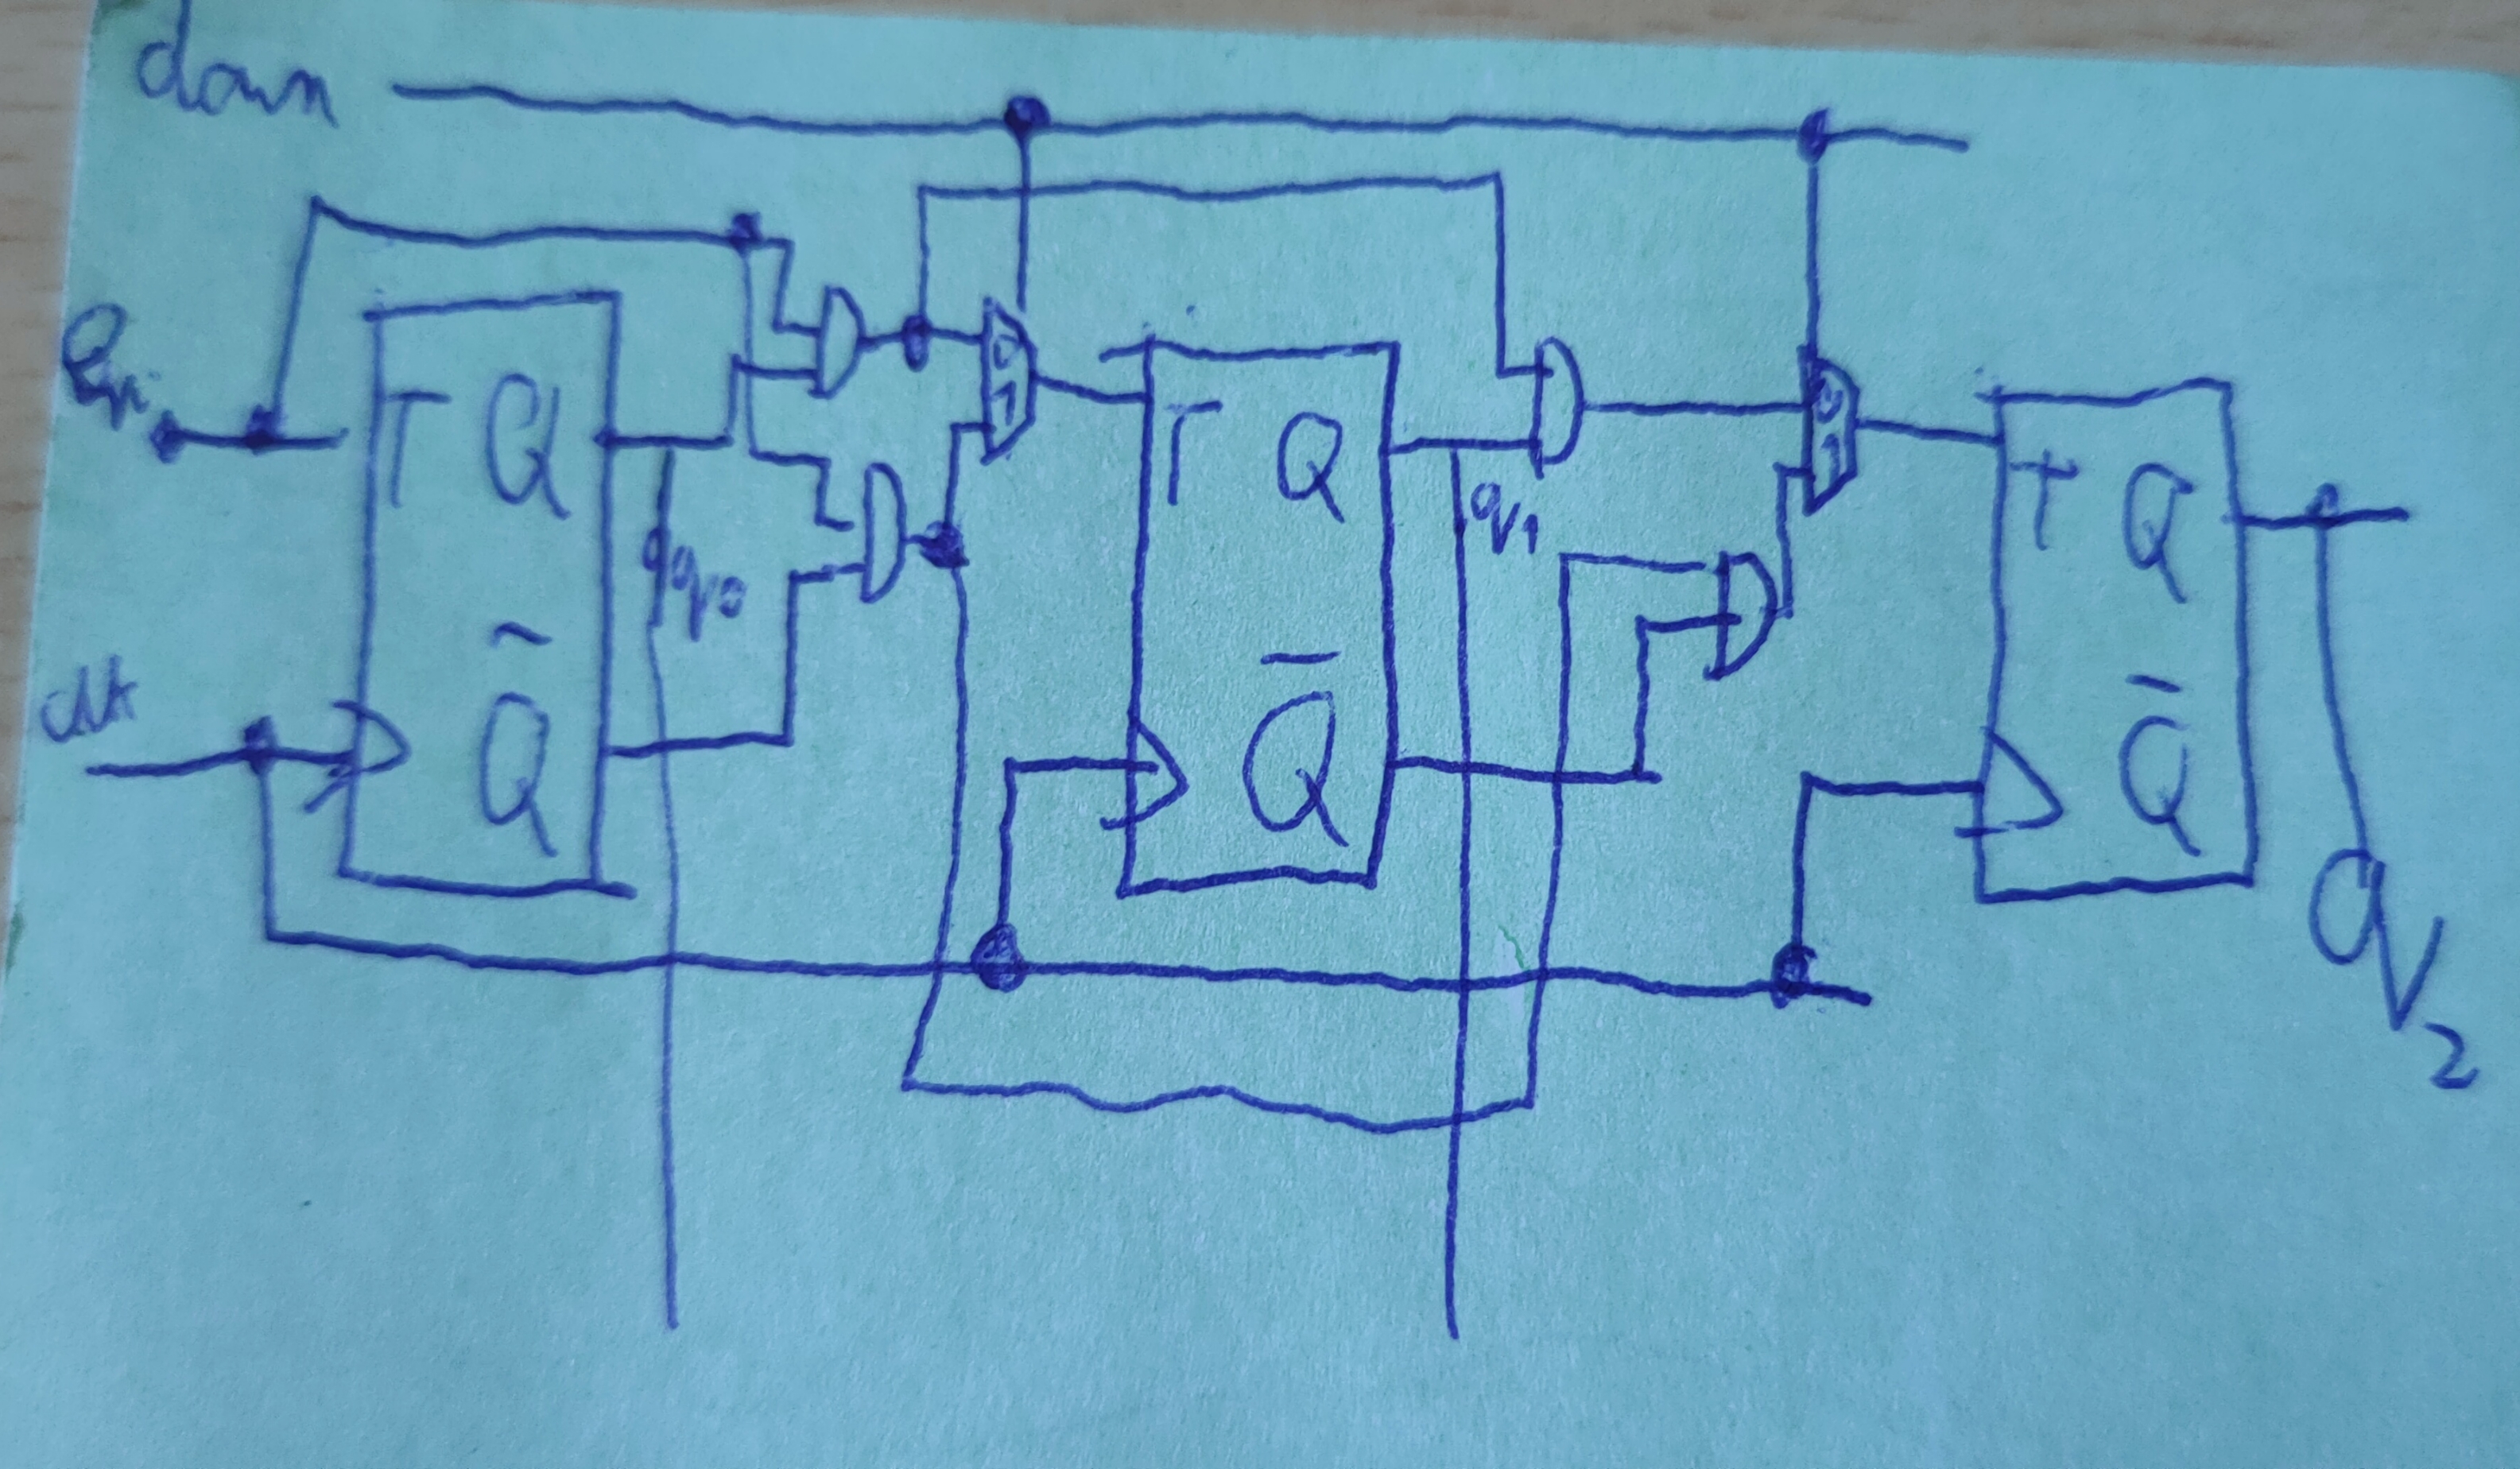 down
en
clk
T Q
Q̄
q0
0
1
T Q
Q̄
q1
0
1
T Q
Q̄
q2